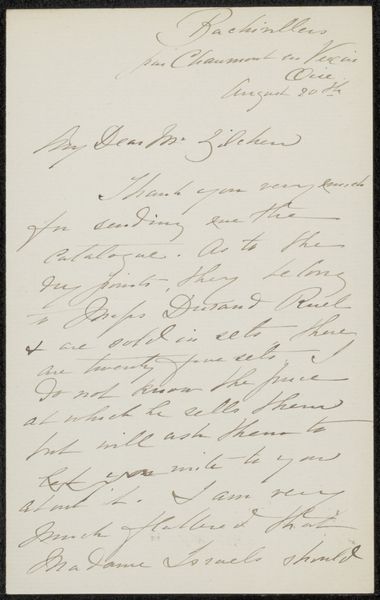 Bachivillers
par Chaumont en Vexin
Oise
August 20th
My Dear Mr Zilcken
Thank you very much
for sending me the
Catalogue. As to the
dry points, they belong
to Messrs Durand Ruel
& are sold in sets, there
are twenty five sets. I
do not know the price
at which he sells them
but will ask them to
write to you
about it. I am very
much flattered that
Madame Israels should